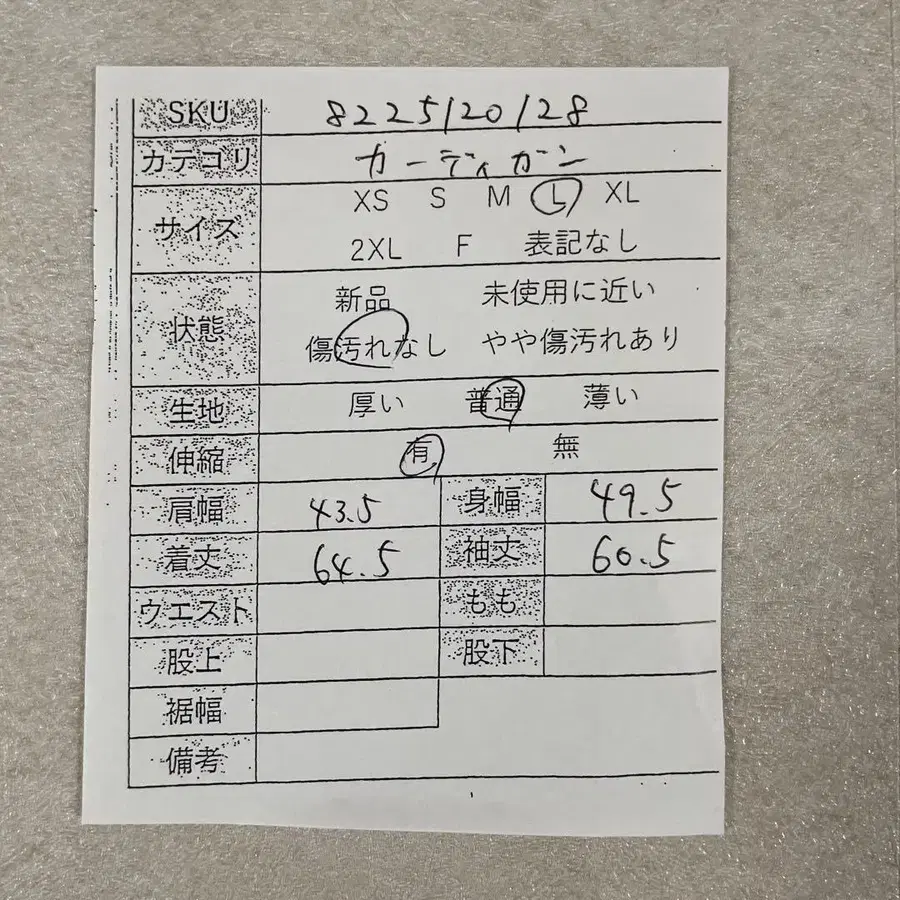 SKU 8225120128
カテゴリ カーディガン
サイズ XS S M L XL
2XL F 表記なし
状態 新品 未使用に近い
傷汚れなし やや傷汚れあり
生地 厚い 普通 薄い
伸縮 有 無
肩幅 43.5 身幅 49.5
着丈 64.5 袖丈 60.5
ウエスト もも
股上 股下
裾幅
備考